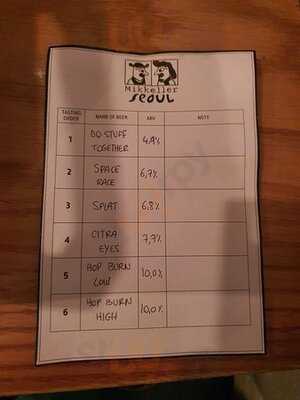 Mikkeller
SEOUL
TASTING ORDER NAME OF BEER ABV NOTE
1 DO STUFF TOGETHER 4.9%
2 SPACE RACE 6,7%
3 SPLAT 6.8%
4 CITRA EYES 7,7%
5 HOP BURN LOW 10,0%
6 HOP BURN HIGH 10,0%